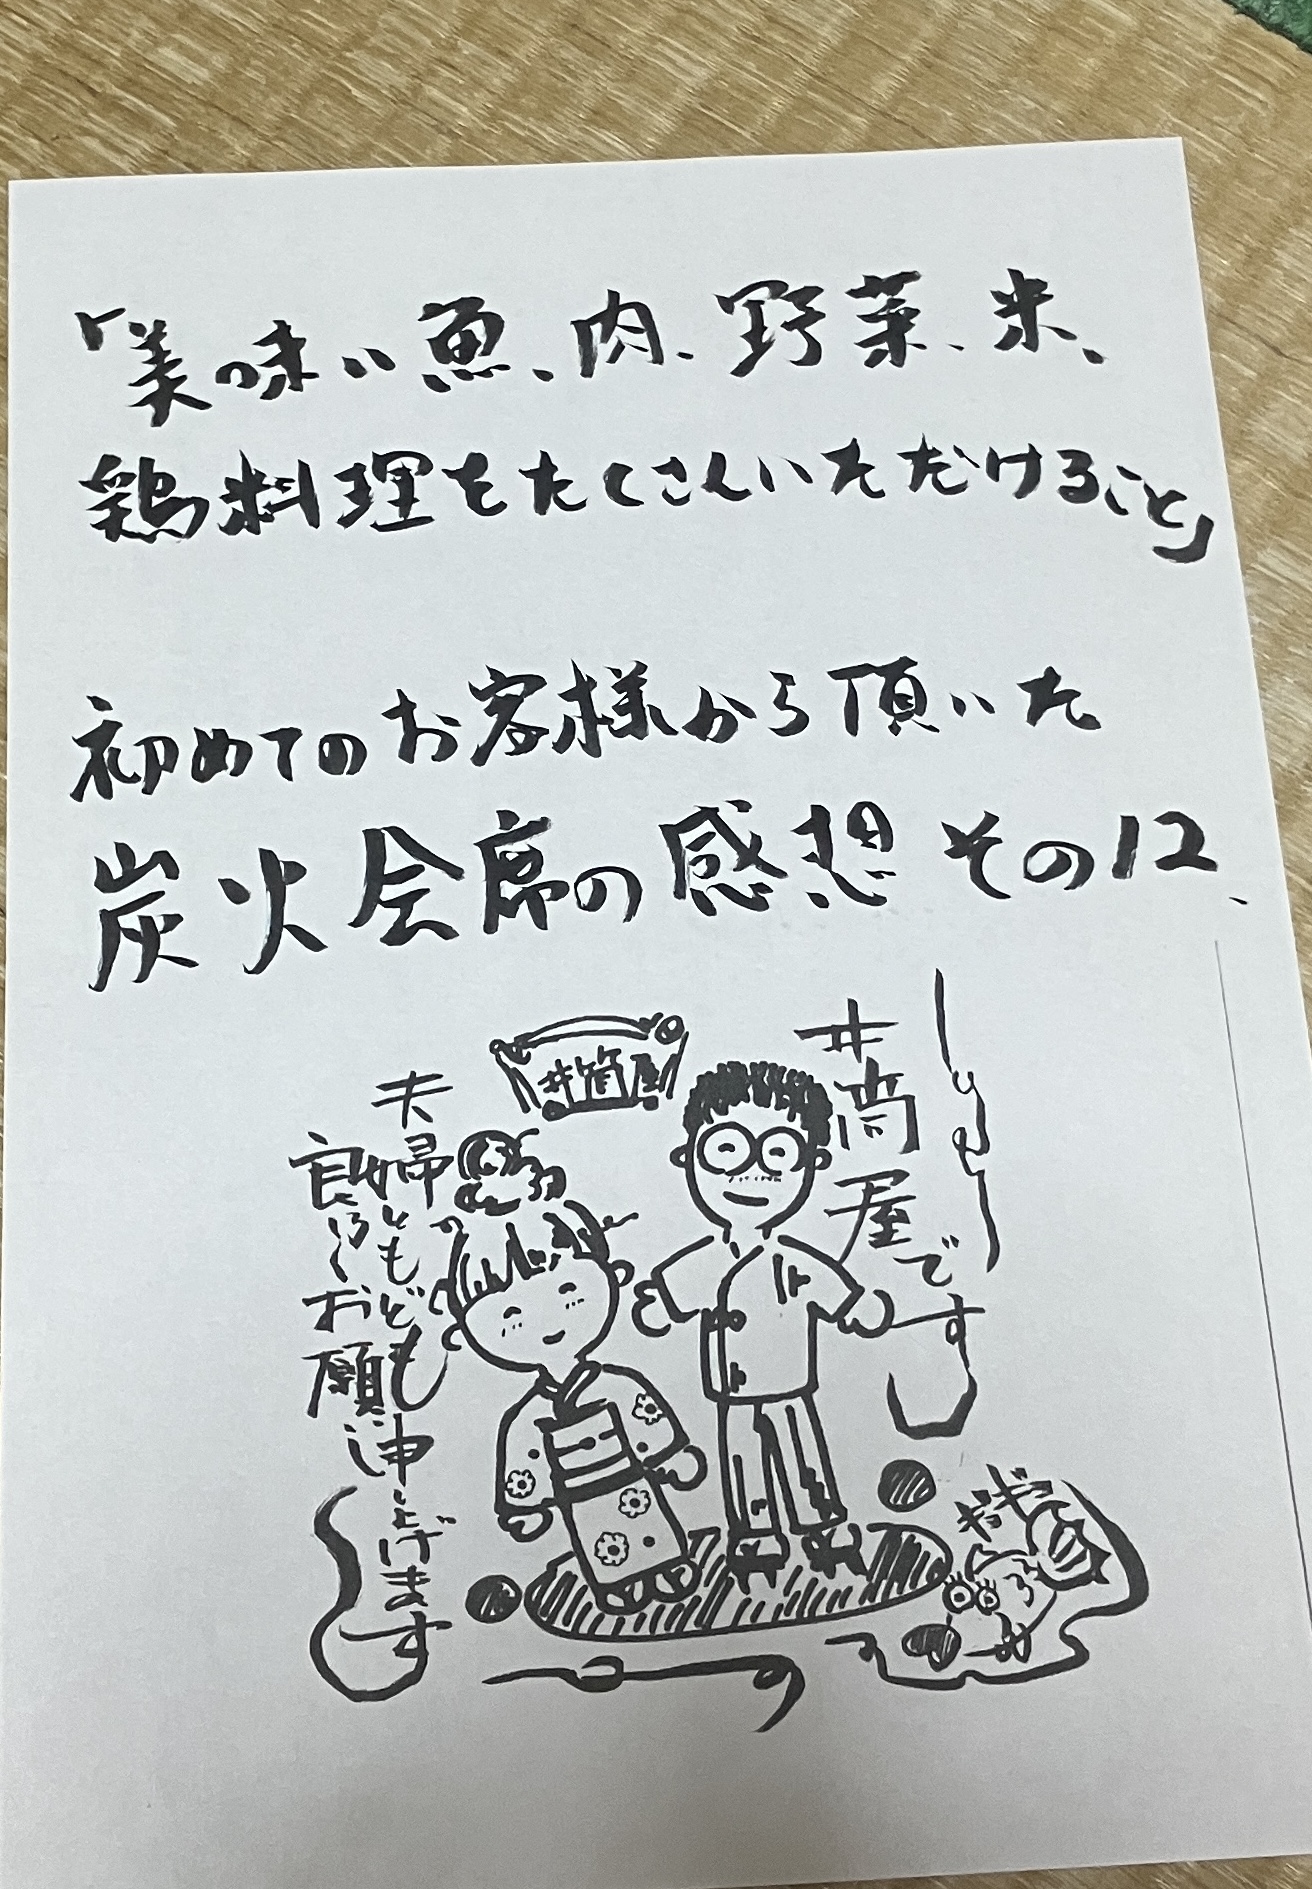 「美味い魚、肉、野菜、米、
鶏料理をたくさんいただけること」
初めてのお客様から頂いた
炭火会席の感想その12、
井筒屋
井筒屋です
夫婦ともども
良ろしくお願い申し上げます
ギョギョ